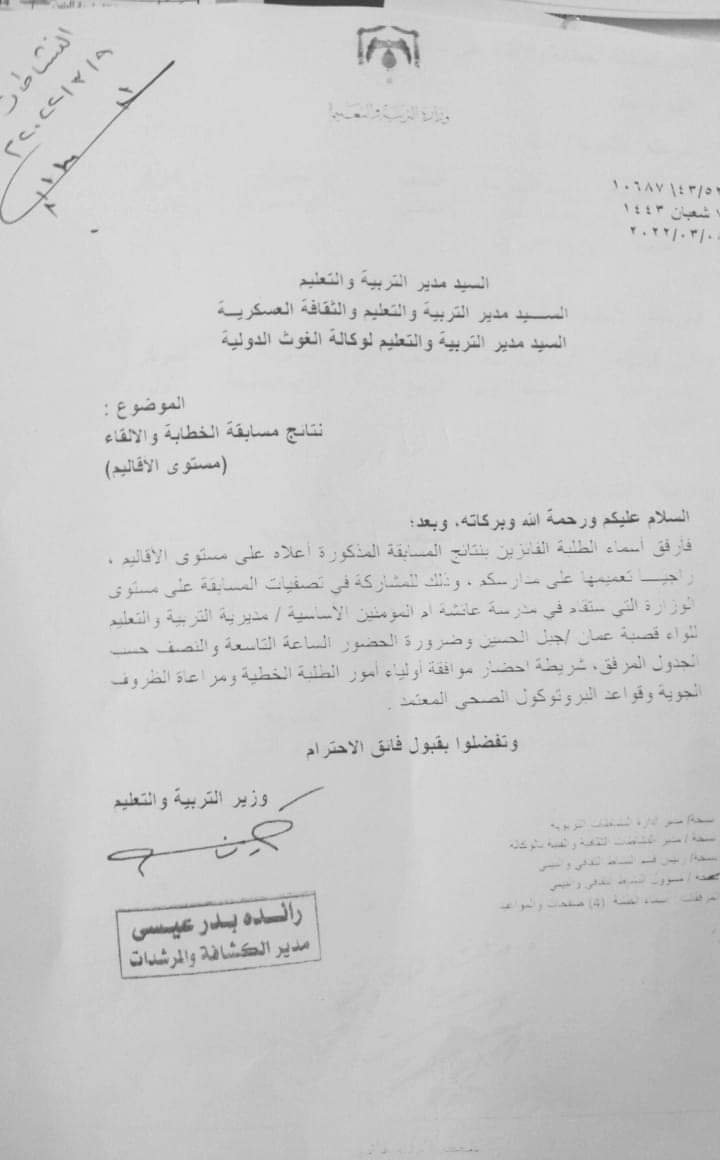 النشاطات
٢٠٢٢/٣/٩
وزارة التربية والتعليم
١٠٦٨٧
شعبان ١٤٤٣
٢٠٢٢/٠٣/٠
السيد مدير التربية والتعليم
الســـيد مدير التربية والتعليم والثقافة العسكريـــة
السيد مدير التربية والتعليم لوكالة الغوث الدولية
الموضوع :
نتائج مسابقة الخطابة والالقاء
(مستوى الأقاليم)
السلام عليكم ورحمة الله وبركاته، وبعد؛
فأرفق أسماء الطلبة الفائزين بنتائج المسابقة المذكورة أعلاه على مستوى الأقاليم ،
راجيـــا تعميمها على مدارسكم ، وذلك للمشاركة في تصفيات المسابقة على مستوى
الوزارة التي ستقام في مدرسة عائشة ام المؤمنين الأساسية / مديرية التربية والتعليم
للواء قصبة عمان /جبل الحسين وضرورة الحضور الساعة التاسعة والنصف حسب
الجدول المرفق، شريطة احضار موافقة أولياء أمور الطلبة الخطية ومراعاة الظروف
الجوية وقواعد البروتوكول الصحي المعتمد .
وتفضلوا بقبول فائق الاحترام
وزير التربية والتعليم
نسخة/ مدير إدارة النشاطات التربوية
نسخة / مدير النشاطات الثقافية والفنية بالوكالة
نسخة/ رئيس قسم النشاط الثقافي
نسخة / مسؤول النشاط الثقافي
المرفقات : أسماء الطلبة (4) صفحات والمواعيد
رائــده بــدر عيـــسى
مدير الكشافة والمرشدات